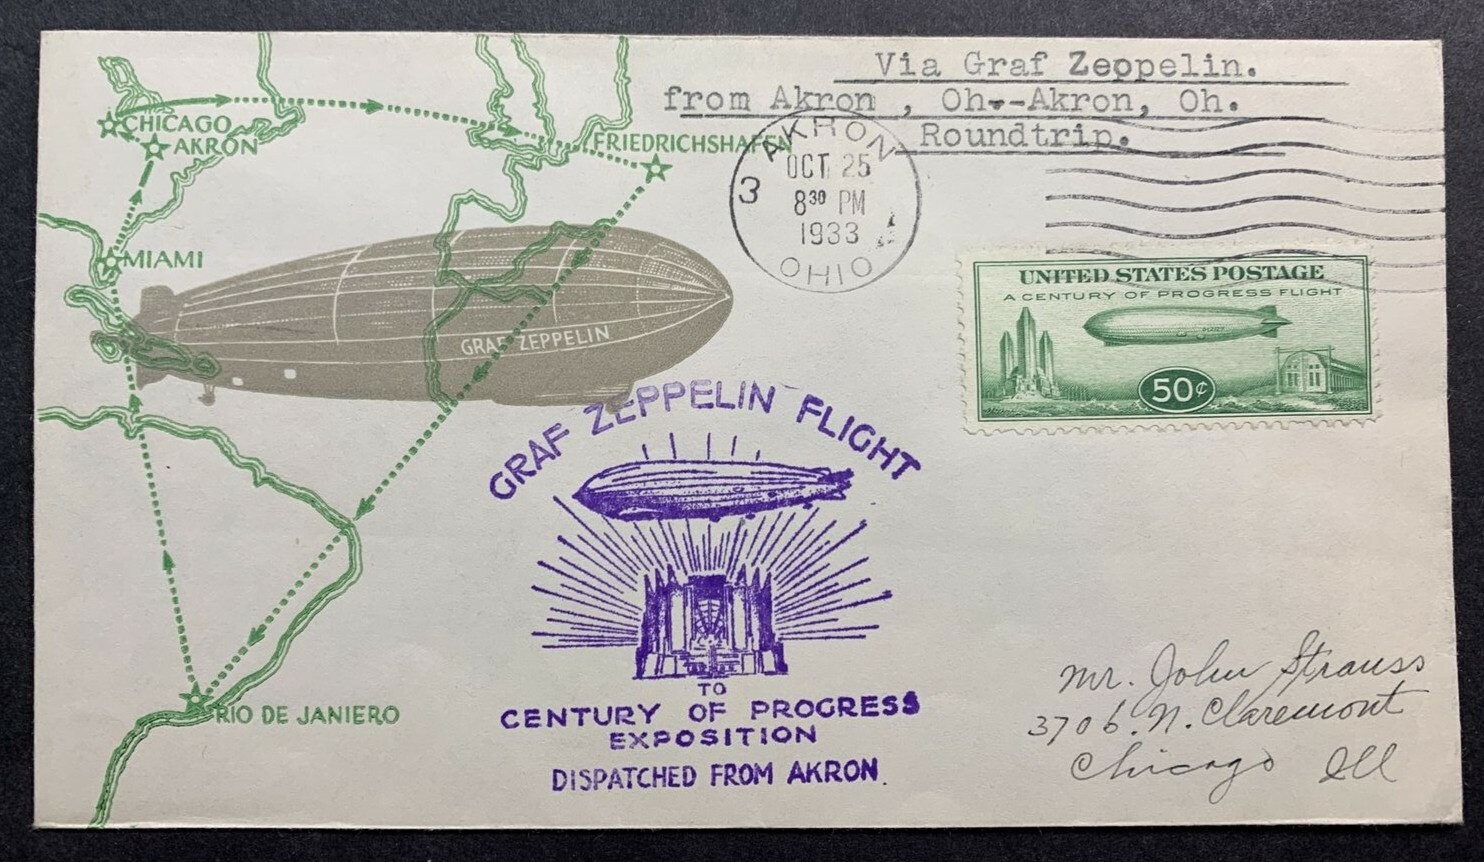 Via Graf Zeppelin.
from Akron , Oh.--Akron, Oh.
Roundtrip.
CHICAGO
AKRON
FRIEDRICHSHAFEN
MIAMI
RIO DE JANIERO
GRAF ZEPPELIN
AKRON
OCT 25
8³⁰ PM
1933
OHIO
3
UNITED STATES POSTAGE
A CENTURY OF PROGRESS FLIGHT
50¢
GRAF ZEPPELIN FLIGHT
TO
CENTURY OF PROGRESS
EXPOSITION
DISPATCHED FROM AKRON.
Mr. John Strauss
3706. N. Claremont
Chicago Ill